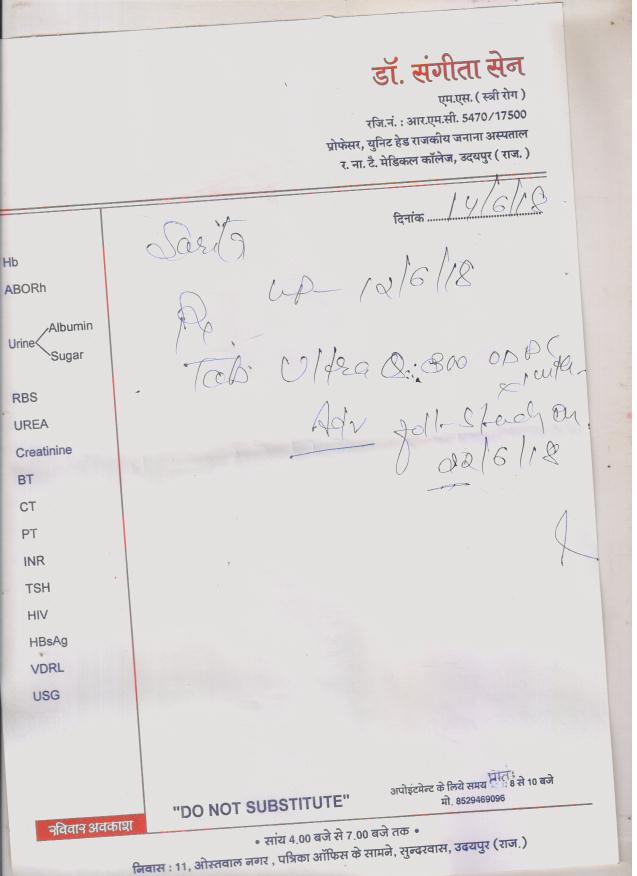 डॉ. संगीता सेन
एम.एस. ( स्त्री रोग )
रजि.नं. : आर.एम.सी. 5470/17500
प्रोफेसर, युनिट हेड राजकीय जनाना अस्पताल
र. ना. टै. मेडिकल कॉलेज, उदयपुर ( राज. )
दिनांक 14/6/18
12/6/18
Tab. Ultra Q. 300
Adv foll. Study on
22/6/18
Hb
ABORh
Urine Albumin
Sugar
RBS
UREA
Creatinine
BT
CT
PT
INR
TSH
HIV
HBsAg
VDRL
USG
रविवार अवकाश
"DO NOT SUBSTITUTE"
अपोइंटमेन्ट के लिये समय प्रातः 8 से 10 बजे
मो. 8529469096
• सांय 4.00 बजे से 7.00 बजे तक •
निवास : 11, ओस्तवाल नगर , पत्रिका ऑफिस के सामने, सुन्दरवास, उदयपुर (राज.)